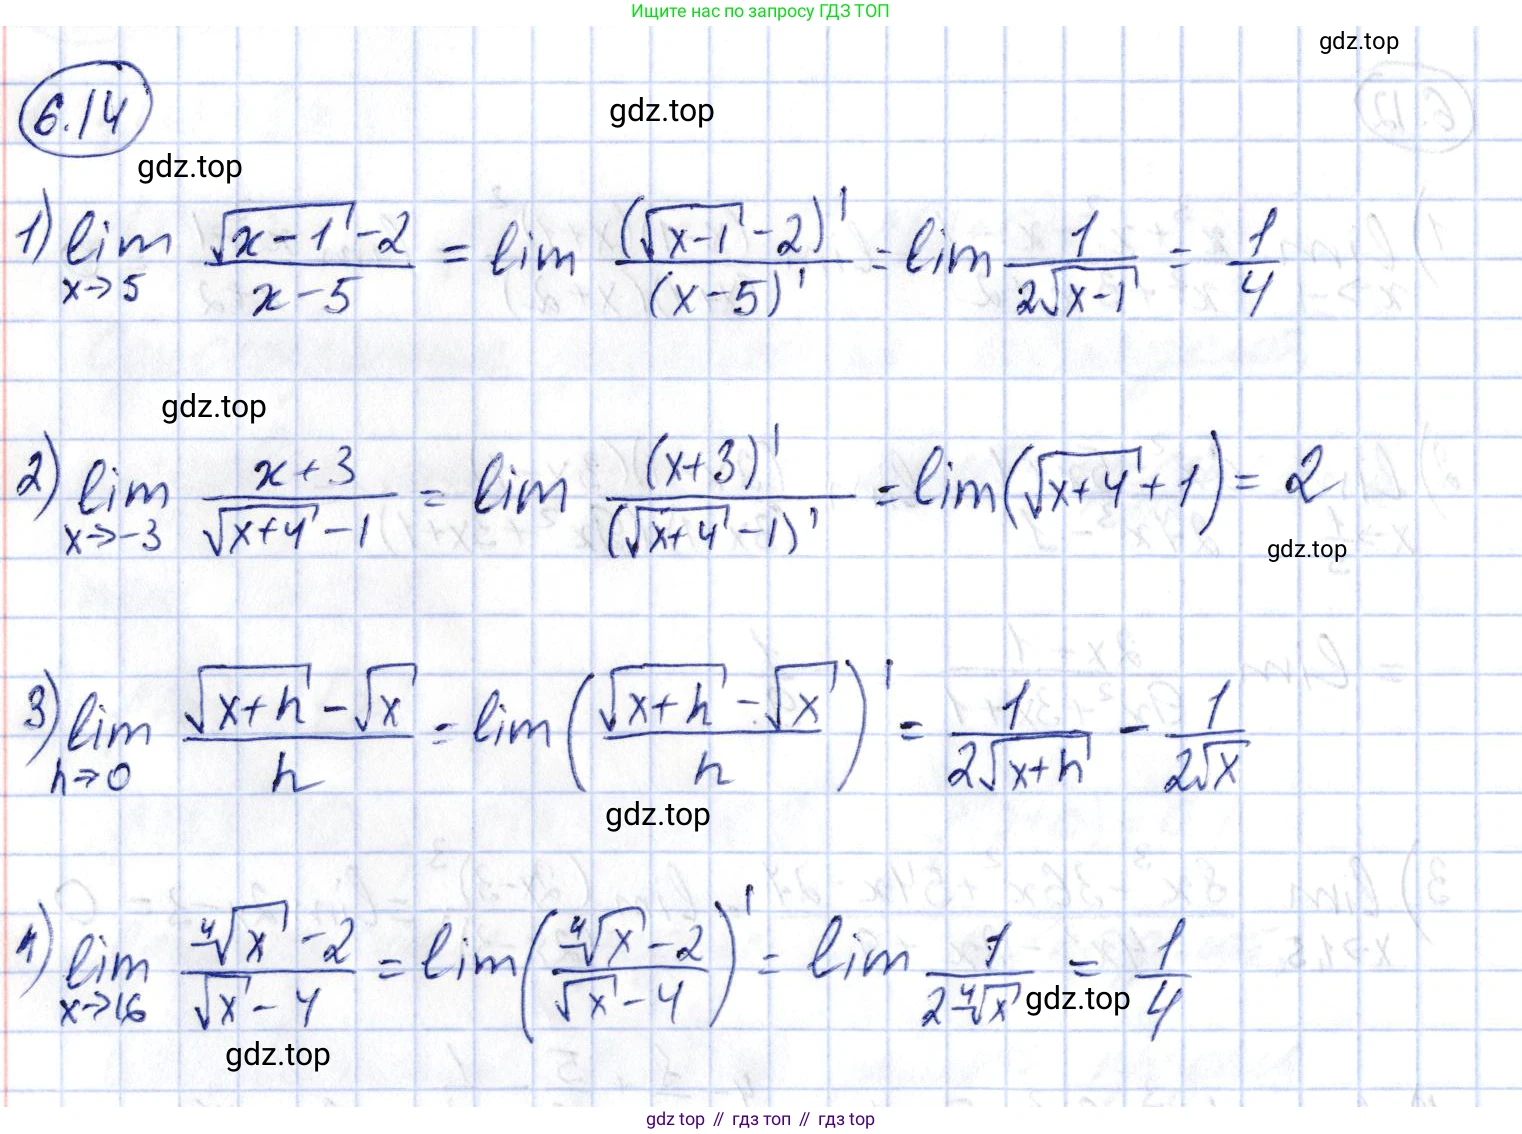 Ищите нас по запросу ГДЗ ТОП
gdz.top
6.14
gdz.top
gdz.top
1) lim x→5 (√(x-1) - 2)/(x-5) = lim (√(x-1) - 2)'/(x-5)' = lim 1/(2√(x-1)) = 1/4
gdz.top
2) lim x→-3 (x+3)/(√(x+4) - 1) = lim (x+3)'/(√(x+4) - 1)' = lim (√(x+4) + 1) = 2
gdz.top
3) lim h→0 (√(x+h) - √x)/h = lim ((√(x+h) - √x)/h)' = 1/(2√(x+h)) - 1/(2√x)
gdz.top
4) lim x→16 (⁴√x - 2)/(√x - 4) = lim ((⁴√x - 2)/(√x - 4))' = lim 1/(2⁴√x) = 1/4
gdz.top
gdz.top
gdz top // гдз топ // гдз top